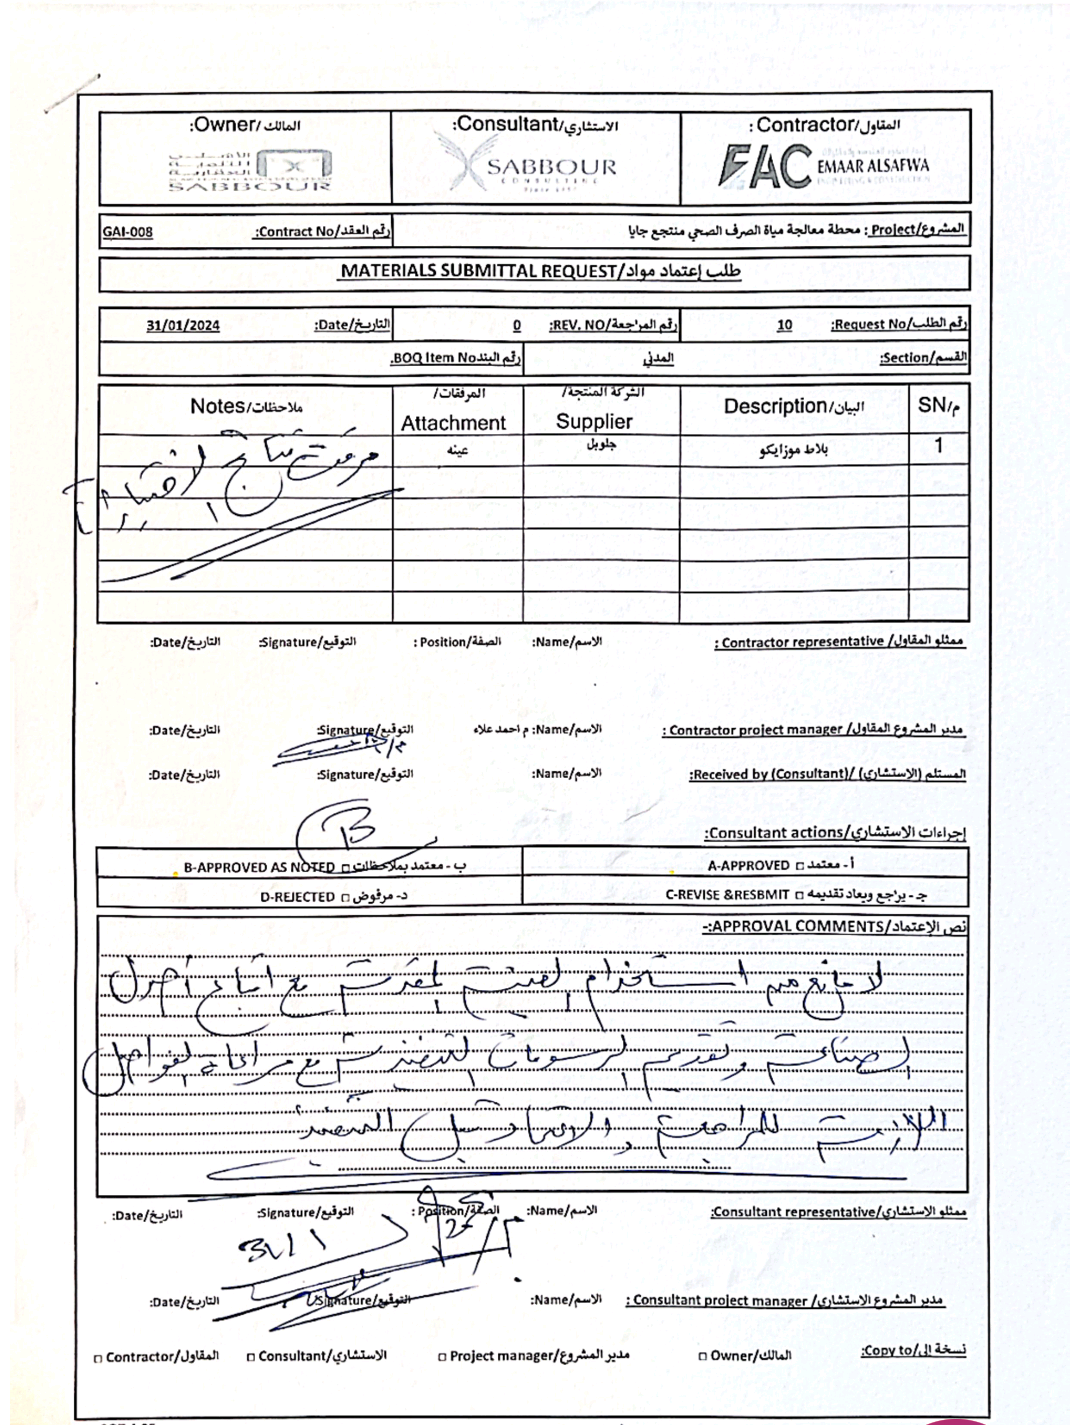 المالك/Owner:
الاستشاري/Consultant:
المقاول/Contractor :
SABBOUR
SABBOUR
CONSULTING
FAC EMAAR ALSAFWA
المشروع/Project : محطة معالجة مياة الصرف الصحي منتجع جايا
رقم العقد/Contract No: GAI-008
طلب إعتماد مواد/MATERIALS SUBMITTAL REQUEST
رقم الطلب/Request No: 10
رقم المراجعة/REV. NO: 0
التاريخ/Date: 31/01/2024
القسم/Section: المدني
رقم البند/BOQ Item No.
م/SN البيان/Description الشركة المنتجة/Supplier المرفقات/Attachment ملاحظات/Notes
1 بلاط موزايكو جلوبل عينه
مرفق نتائج الاختبار
ممثلو المقاول/Contractor representative : الاسم/Name: الصفة/Position : التوقيع/Signature: التاريخ/Date:
مدير المشروع المقاول/Contractor project manager : الاسم/Name: م احمد علاء التوقيع/Signature: التاريخ/Date:
المستلم (الاستشاري)/Received by (Consultant): الاسم/Name: التوقيع/Signature: التاريخ/Date:
B
إجراءات الاستشاري/Consultant actions:
أ- معتمد □ A-APPROVED
ب- معتمد بملاحظات □ B-APPROVED AS NOTED
جـ- يراجع ويعاد تقديمه □ C-REVISE &RESBMIT
د- مرفوض □ D-REJECTED
نص الإعتماد/APPROVAL COMMENTS:-
لا مانع من استخدام العينة المقدمة مع اتباع أصول
الصناعة وتقديم الرسومات التنفيذية مع مراعاة الفواصل
اللازمة للمراجعة والاعتماد قبل التنفيذ
ممثلو الاستشاري/Consultant representative: الاسم/Name: الصفة/Position : التوقيع/Signature: التاريخ/Date:
31/1
مدير المشروع الاستشاري/Consultant project manager : الاسم/Name: التوقيع/Signature: التاريخ/Date:
نسخة الى/Copy to: المالك/Owner □ مدير المشروع/Project manager □ الاستشاري/Consultant □ المقاول/Contractor □